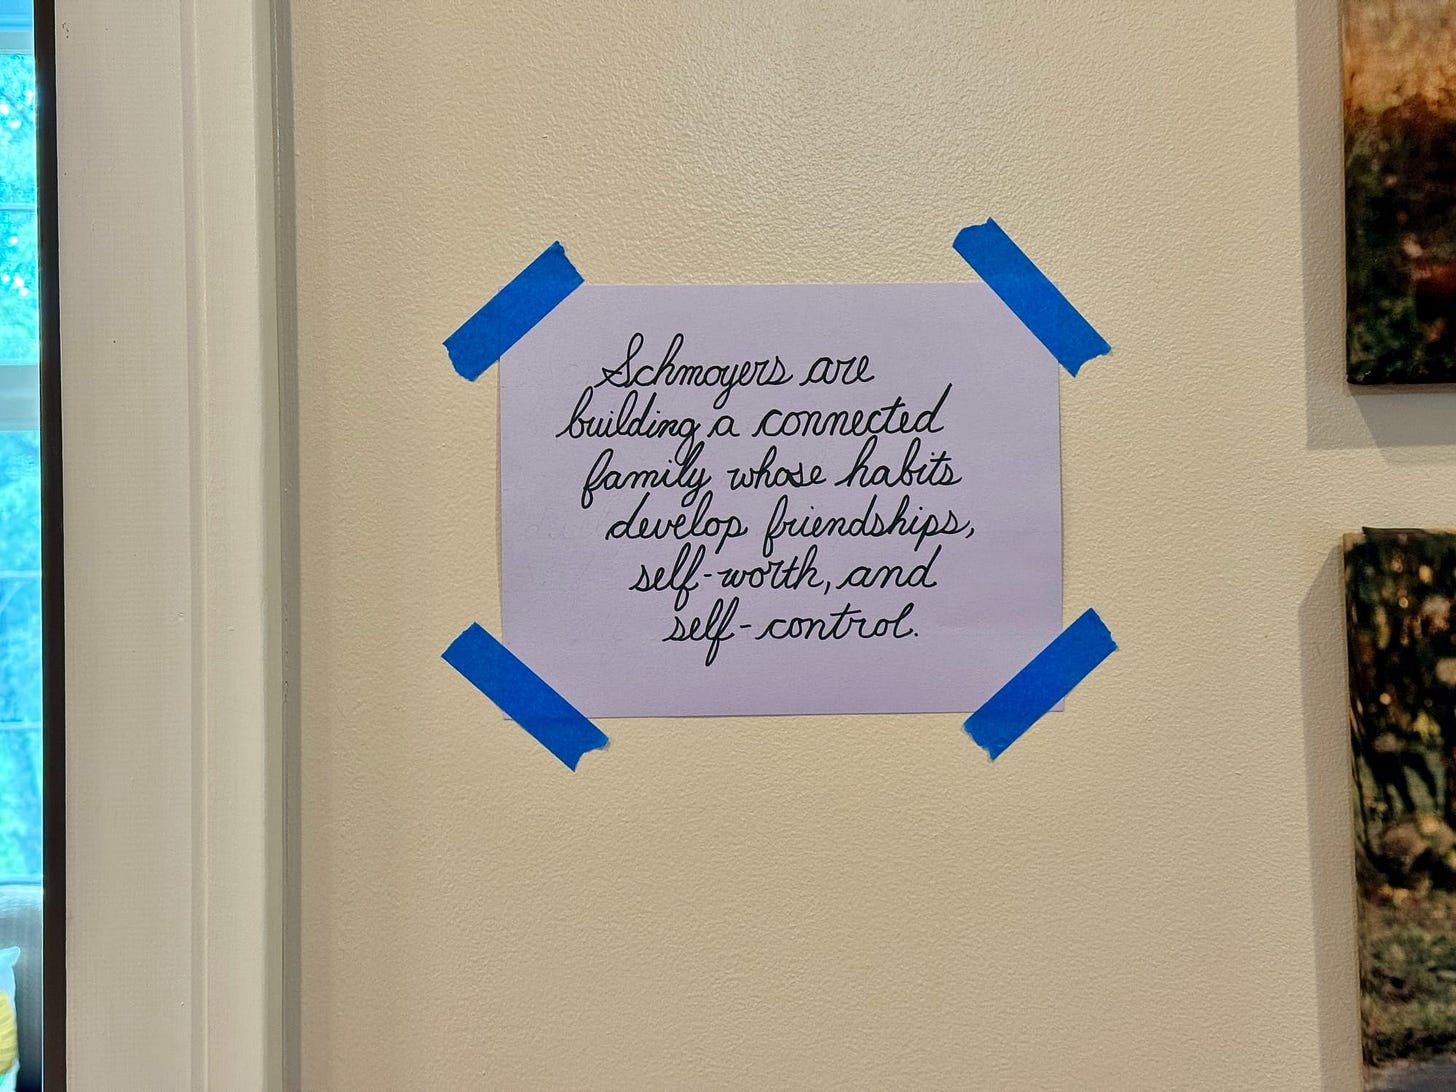 Schmoyers are
building a connected
family whose habits
develop friendships,
self-worth, and
self-control.